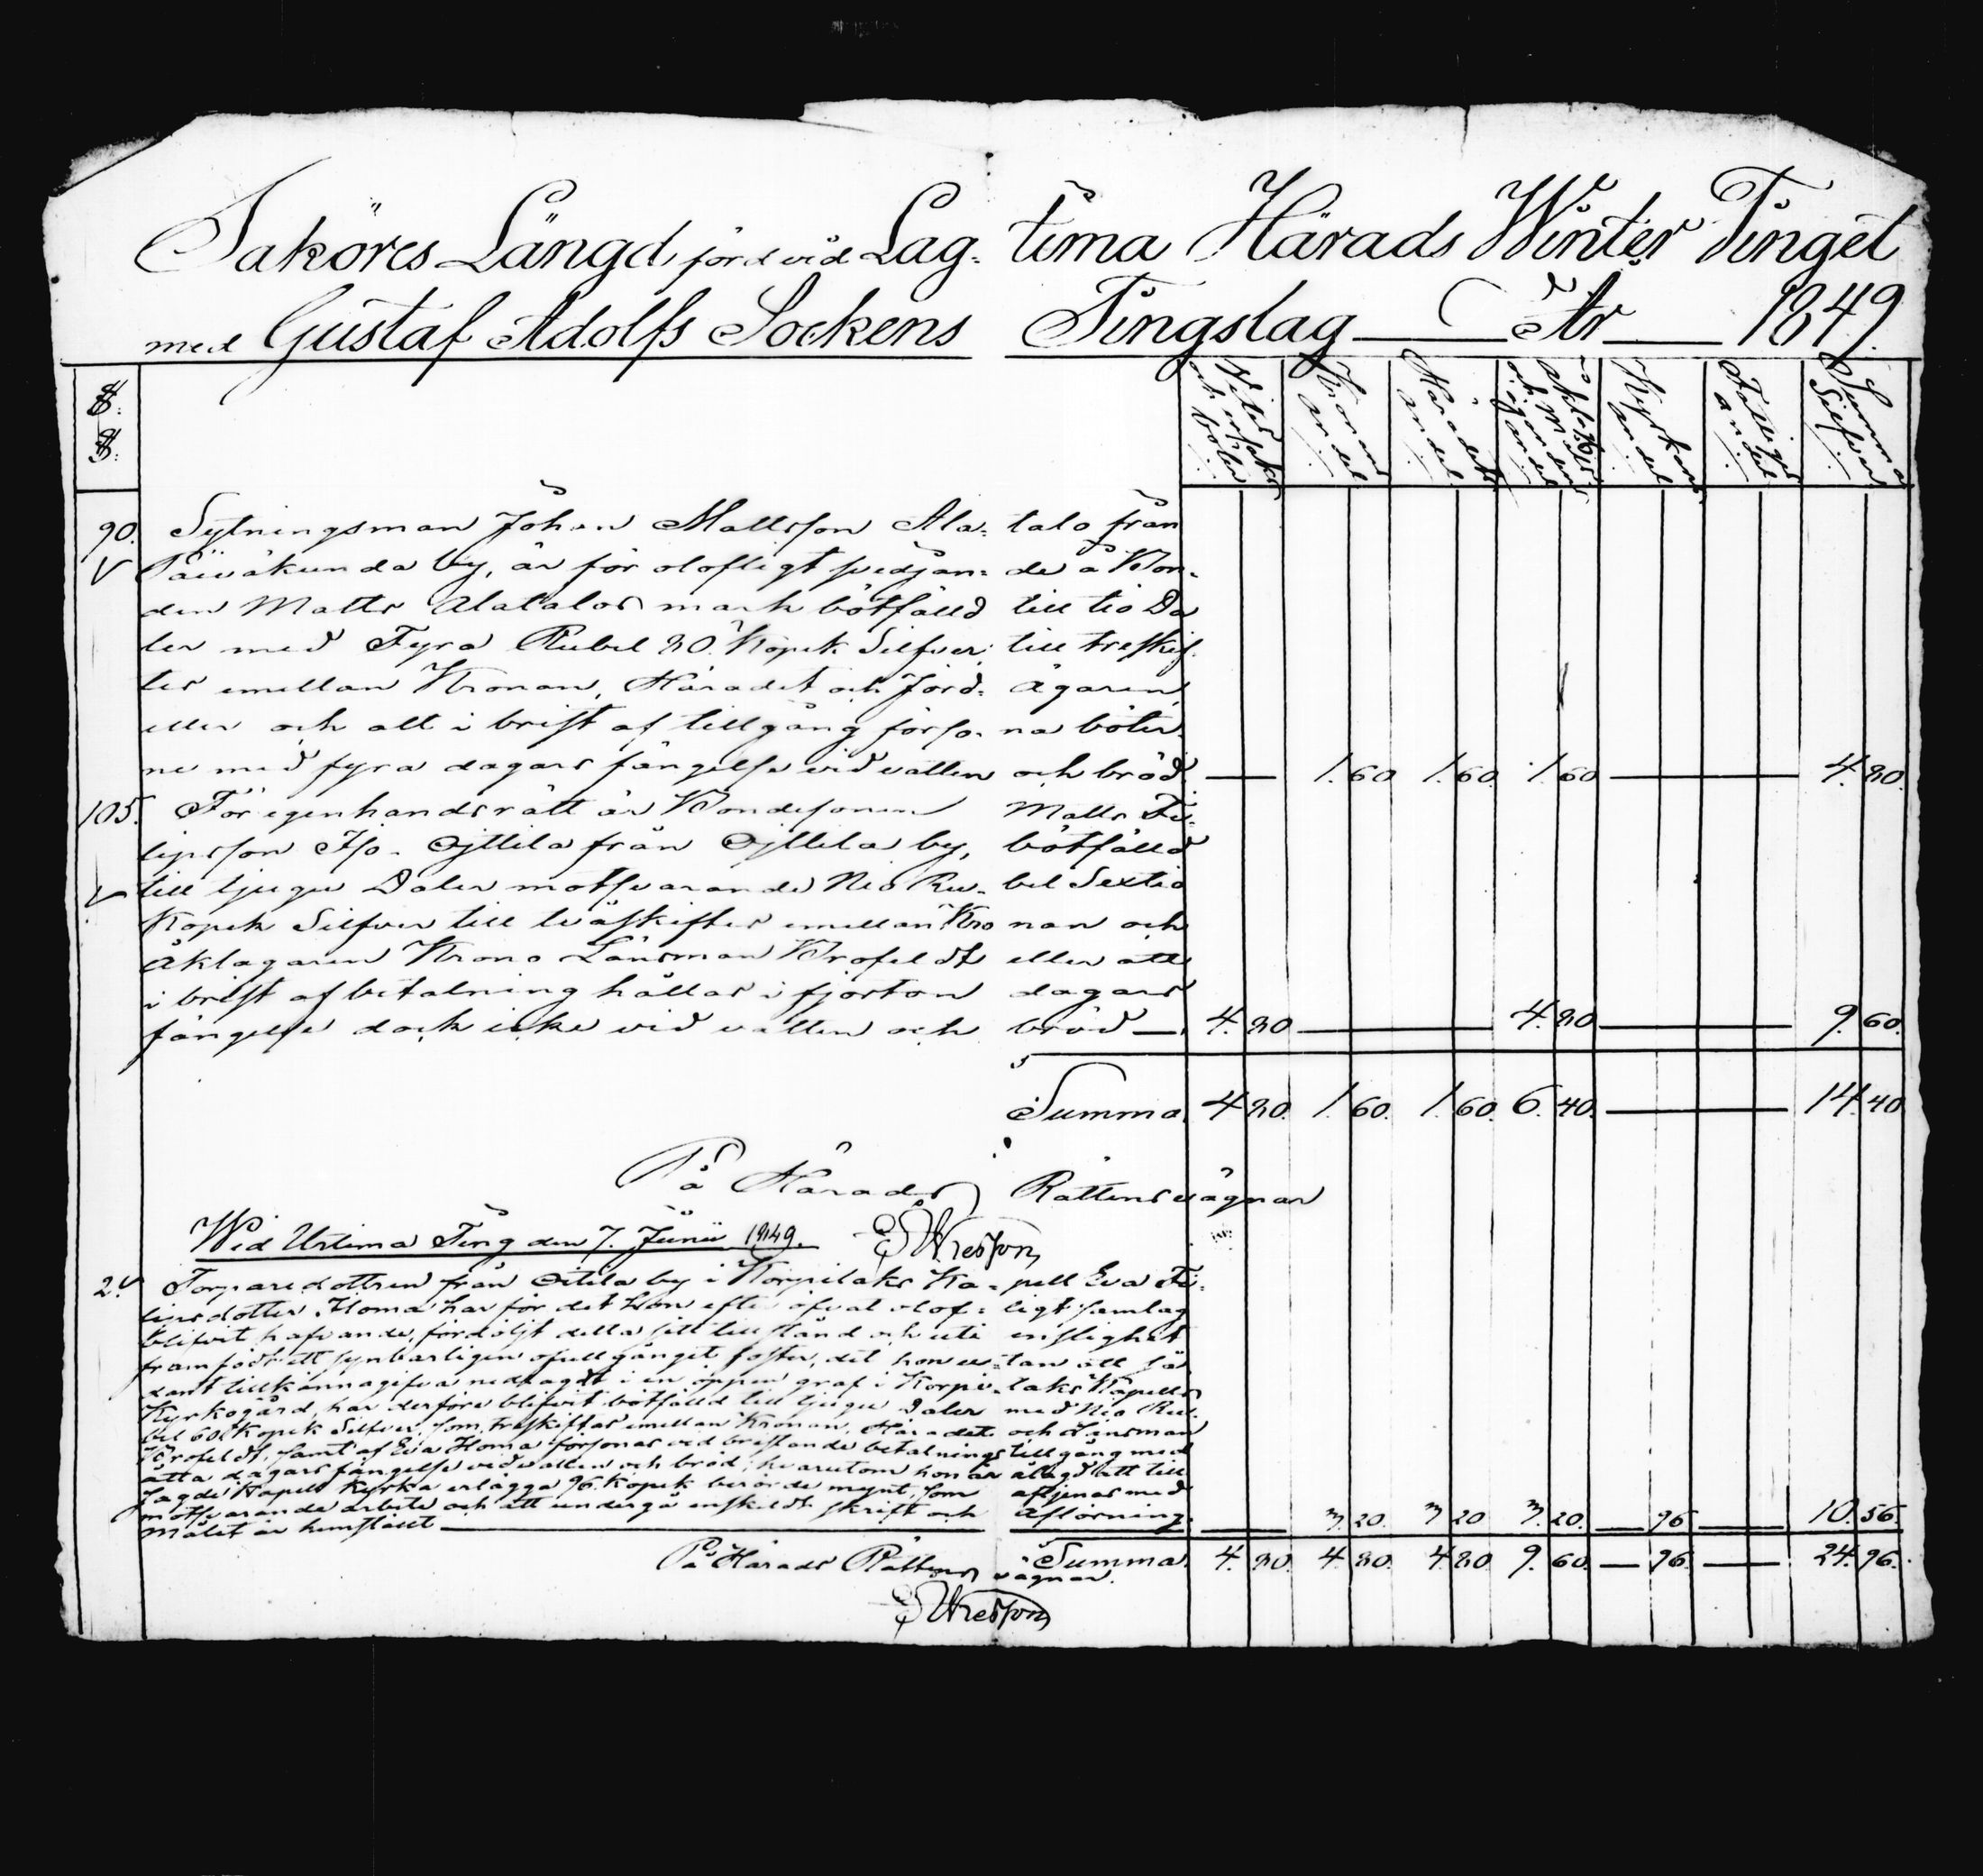 Saköres Längd förd vid Lag- tima Härads Winter Tinget
med Gustaf Adolfs Sockens Tingslag År 1849.
§. §.
Kronans andel
Häradets andel
Kyrkans andel
Fattigas andel
Summa Silfver
90. Sytningsman Johan Mattsson Ala- talo från
Päiväkunda by, är för olofligt svedjan- de å Bon-
den Matts Alatalos mark bötfälld till tio Da
ler med Fyra Rubel 80. Kopek Silfver; till treskif-
tes emellan Kronan, Häradet och Jord- ägaren,
eller och att i brist af tillgång förso- na böter-
ne med fyra dagars fängelse vid vatten och bröd. 1. 60 1. 60. 1. 60 4. 80.
105. För egenhandsrätt är Bondesonen Matts Fi-
lipsson Iso- Ojttila från Ojttila by, bötfälld
till tjugu Daler motsvarande Nio Ru- bel Sextio
Kopek Silfver till tväskiftes emellan Kro nan och
Åklagaren Krono Länsman Brofeldt eller att
i brist af betalning hållas i fjorton dagars
fängelse dock icke vid vatten och bröd 4. 80 4. 80 9. 60.
Summa 4. 80. 1. 60. 1. 60. 6. 40. 14. 40
På Härads Rättens vägnar
Wid Urtima Ting den 7. Junii 1849.
2. Torparedottren från Oitila by i Korpilaks Ka- pell Eva Fi-
lipsdotter Homa har för det hon efter öfvat olof- ligt samlag
blifvit hafvande, fördöljt detta sitt tillstånd och uti enslighet
framfödt ett synbarligen ofullgånget foster, det hon u- tan att så
dant tillkännagifva nedlagdt i en öppen graf i Korpi- laks Kapells
Kyrkogård, har derföre blifvit bötfälld till tjugu Daler med Nio Ru-
bel 60. Kopek Silfver, som treskiftas emellan Kronan, Häradet och Länsman
Brofeldt, samt af Eva Homa försonas vid bristande betalnings tillgång med
åtta dagars fängelse vid vatten och bröd; hvarutom hon är ålagd att till
sagde Kapells Kyrka erlägga 96. Kopek berörde mynt, som aftjenas med
motsvarande arbete och att undergå enskildt skrift och Aflösning. 3. 20. 3 20 3. 20. 96 10. 56.
Målet är hemstäldt
Summa. 4. 80. 4. 80. 4. 80 9. 60. 96. 24. 96.
På Härads Rättens vägnar.